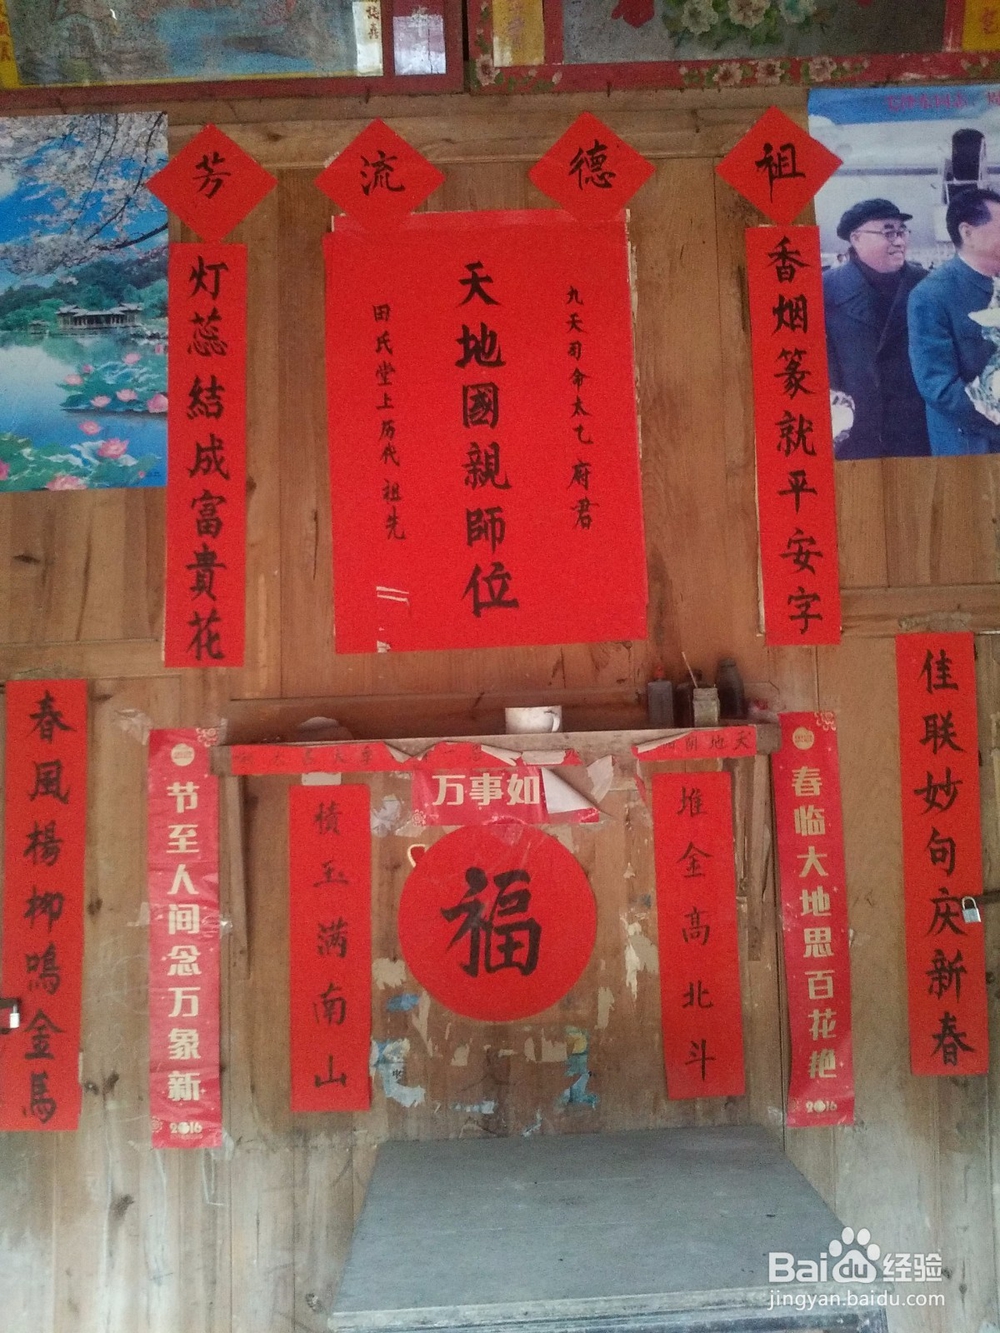 祖德流芳
香烟篆就平安字
九天司命太乙府君
天地國親師位
田氏堂上历代祖先
灯蕊結成富貴花
佳联妙句庆新春
春临大地思百花艳
2016
堆金高北斗
万事如
福
積玉满南山
节至人间念万象新
2016
春風楊柳鳴金馬
Baidu经验
jingyan.baidu.com